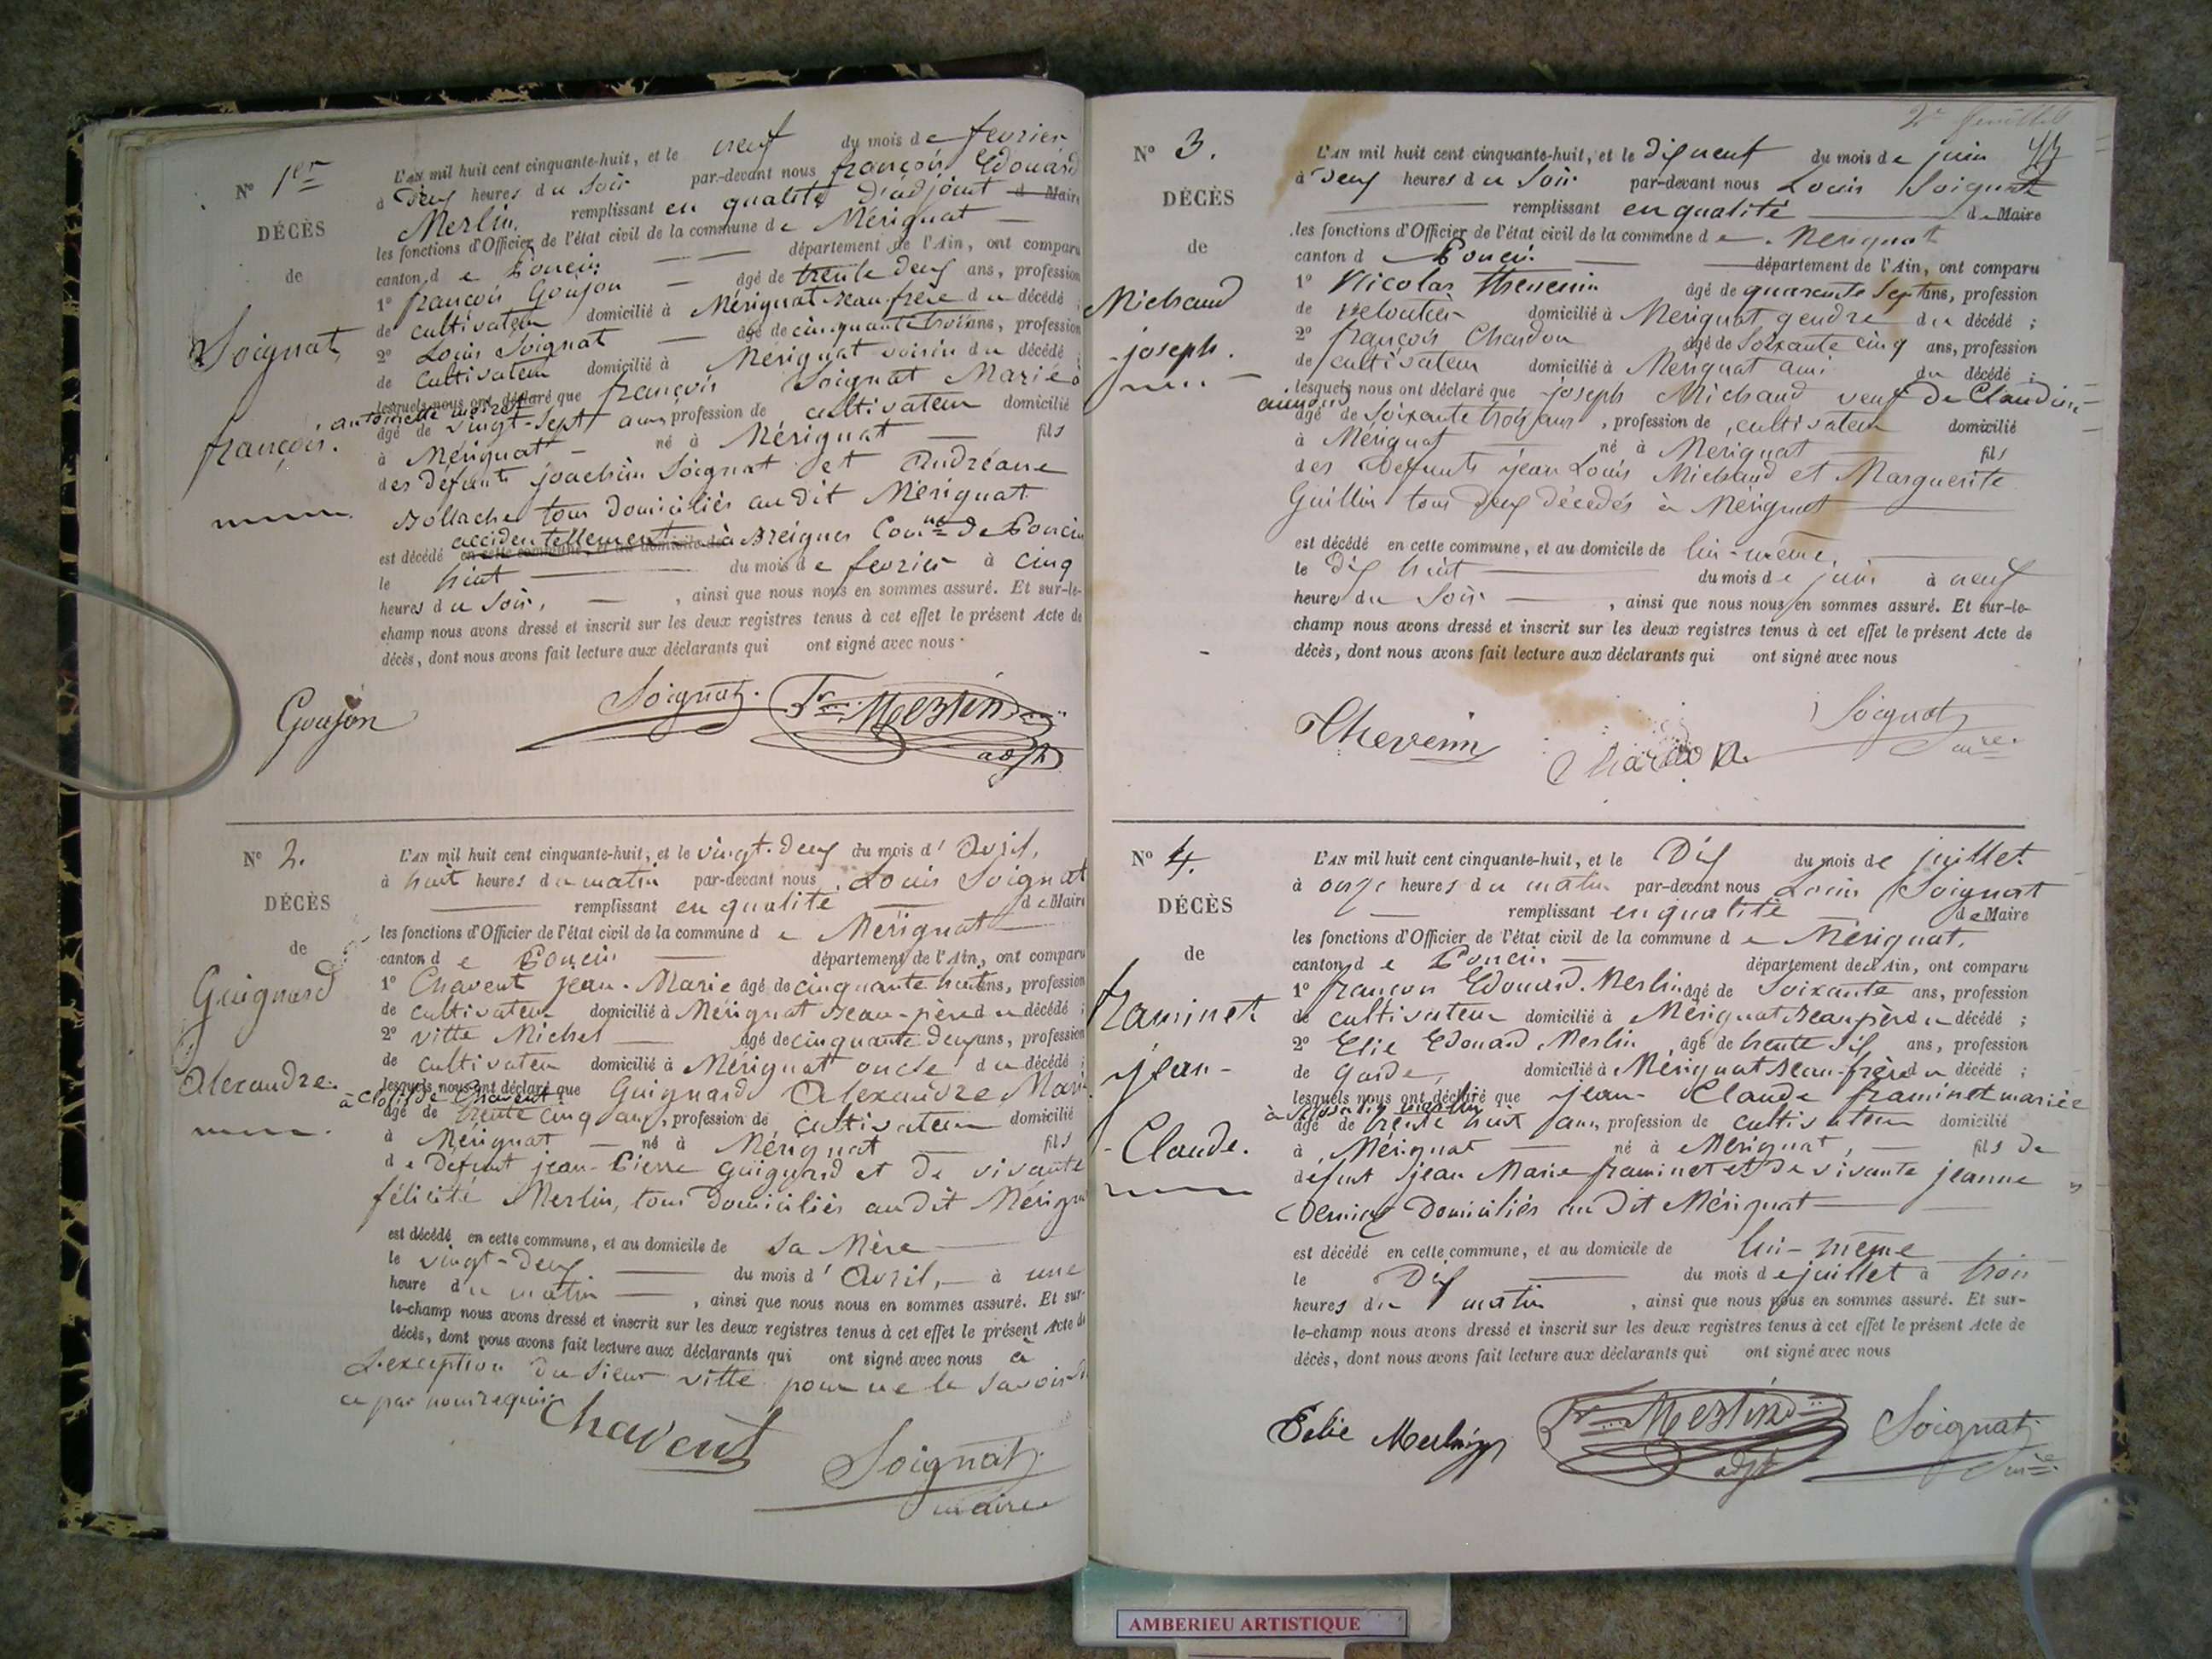 N° 1er
DÉCÈS
de
Soignat
françois.
L'AN mil huit cent cinquante-huit, et le neuf du mois de fevrier
à Deux heures du Soir par-devant nous françois Edouard
Merlin, remplissant en qualité d'adjoint d Maire
les fonctions d'Officier de l'état civil de la commune de Mérignat
canton de Poncin département de l'Ain, ont comparu
1° françois Goujon âgé de trente deux ans, profession
de cultivateur domicilié à Mérignat Beau-frère du décédé ;
2° Louis Soignat âgé de cinquante trois ans, profession
de Cultivateur domicilié à Mérignat voisin du décédé ;
lesquels nous ont déclaré que françois Soignat Marié à
antoinette
âgé de vingt-sept ans, profession de cultivateur domicilié
à Mérignat né à Mérignat fils
des défunts joachim Soignat et Andréane
Bollache tous domiciliés audit Mérignat
accidentellement à Breignes Comne De Poncin
est décédé en cette commune, et au domicile de
le huit du mois de fevrier à cinq
heures du Soir, , ainsi que nous nous en sommes assuré. Et sur-le-
champ nous avons dressé et inscrit sur les deux registres tenus à cet effet le présent Acte de
décès, dont nous avons fait lecture aux déclarants qui ont signé avec nous.
Goujon Soignat. Fr Merlin
adjt
N° 2.
DÉCÈS
de
Guignard
Alexandre.
L'AN mil huit cent cinquante-huit, et le vingt-deux du mois d'Avril,
à huit heures du matin par-devant nous Louis Soignat
remplissant en qualité de Maire
les fonctions d'Officier de l'état civil de la commune de Mérignat
canton de Poncin département de l'Ain, ont comparu
1° Chavent jean-Marie âgé de cinquante huit ans, profession
de cultivateur domicilié à Mérignat Beau-père du décédé ;
2° vitte Michel âgé de cinquante deux ans, profession
de cultivateur domicilié à Mérignat oncle du décédé ;
lesquels nous ont déclaré que Guignard Alexandre Marié
à Clotilde Chavent
âgé de trente cinq ans, profession de cultivateur domicilié
à Mérignat né à Mérignat fils
de défunt jean-Pierre Guignard et de vivante
félicité Merlin, tous domiciliés audit Mérignat
est décédé en cette commune, et au domicile de Sa Mère
le vingt-deux du mois d'Avril, à une
heure du matin , ainsi que nous nous en sommes assuré. Et sur-
le-champ nous avons dressé et inscrit sur les deux registres tenus à cet effet le présent Acte de
décès, dont nous avons fait lecture aux déclarants qui ont signé avec nous à
L'exception du Sieur vitte pour ne le Savoir de
ce par nous requis
Chavent
Soignat
maire
2e feuillet
N° 3.
DÉCÈS
de
Michaud
joseph.
L'AN mil huit cent cinquante-huit, et le dix neuf du mois de juin
à Deux heures du Soir par-devant nous Louis Soignat
remplissant en qualité de Maire
les fonctions d'Officier de l'état civil de la commune de Mérignat
canton d Poncin département de l'Ain, ont comparu
1° Nicolas Thevenin âgé de quarante Sept ans, profession
de veloutier domicilié à Mérignat gendre du décédé ;
2° françois Chardon âgé de Soixante cinq ans, profession
de cultivateur domicilié à Mérignat ami du décédé ;
lesquels nous ont déclaré que joseph Michaud veuf De Claudine
âgé de Soixante trois ans, profession de cultivateur domicilié
à Mérignat né à Mérignat fils
des Défunts jean Louis Michaud et Marguerite
Guillin tous deux décédés à Mérignat
est décédé en cette commune, et au domicile de lui-même,
le dix huit du mois de juin à neuf
heures du Soir , ainsi que nous nous en sommes assuré. Et sur-le-
champ nous avons dressé et inscrit sur les deux registres tenus à cet effet le présent Acte de
décès, dont nous avons fait lecture aux déclarants qui ont signé avec nous
Thevenin Chardon Soignat
maire
N° 4.
DÉCÈS
de
framinet
jean-
Claude.
L'AN mil huit cent cinquante-huit, et le Dix du mois de juillet
à onze heures du matin par-devant nous Louis Soignat
remplissant en qualité de Maire
les fonctions d'Officier de l'état civil de la commune de Mérignat,
canton de Poncin département de l'Ain, ont comparu
1° françois Edouard Merlin âgé de Soixante ans, profession
de cultivateur domicilié à Mérignat Beau père du décédé ;
2° Elie Edouard Merlin âgé de trente dix ans, profession
de Garde, domicilié à Mérignat Beau-frère du décédé ;
lesquels nous ont déclaré que jean-Claude framinet mariée
âgé de trente huit ans, profession de cultivateur domicilié
à Mérignat né à Mérignat, fils de
défunt jean Marie framinet et De vivante jeanne
Domiciliés au Dit Mérignat
est décédé en cette commune, et au domicile de lui-même
le Dix du mois de juillet à trois
heures du matin , ainsi que nous nous en sommes assuré. Et sur-
le-champ nous avons dressé et inscrit sur les deux registres tenus à cet effet le présent Acte de
décès, dont nous avons fait lecture aux déclarants qui ont signé avec nous
Elie Merlin Fr Merlin Soignat
adjt maire
AMBERIEU ARTISTIQUE